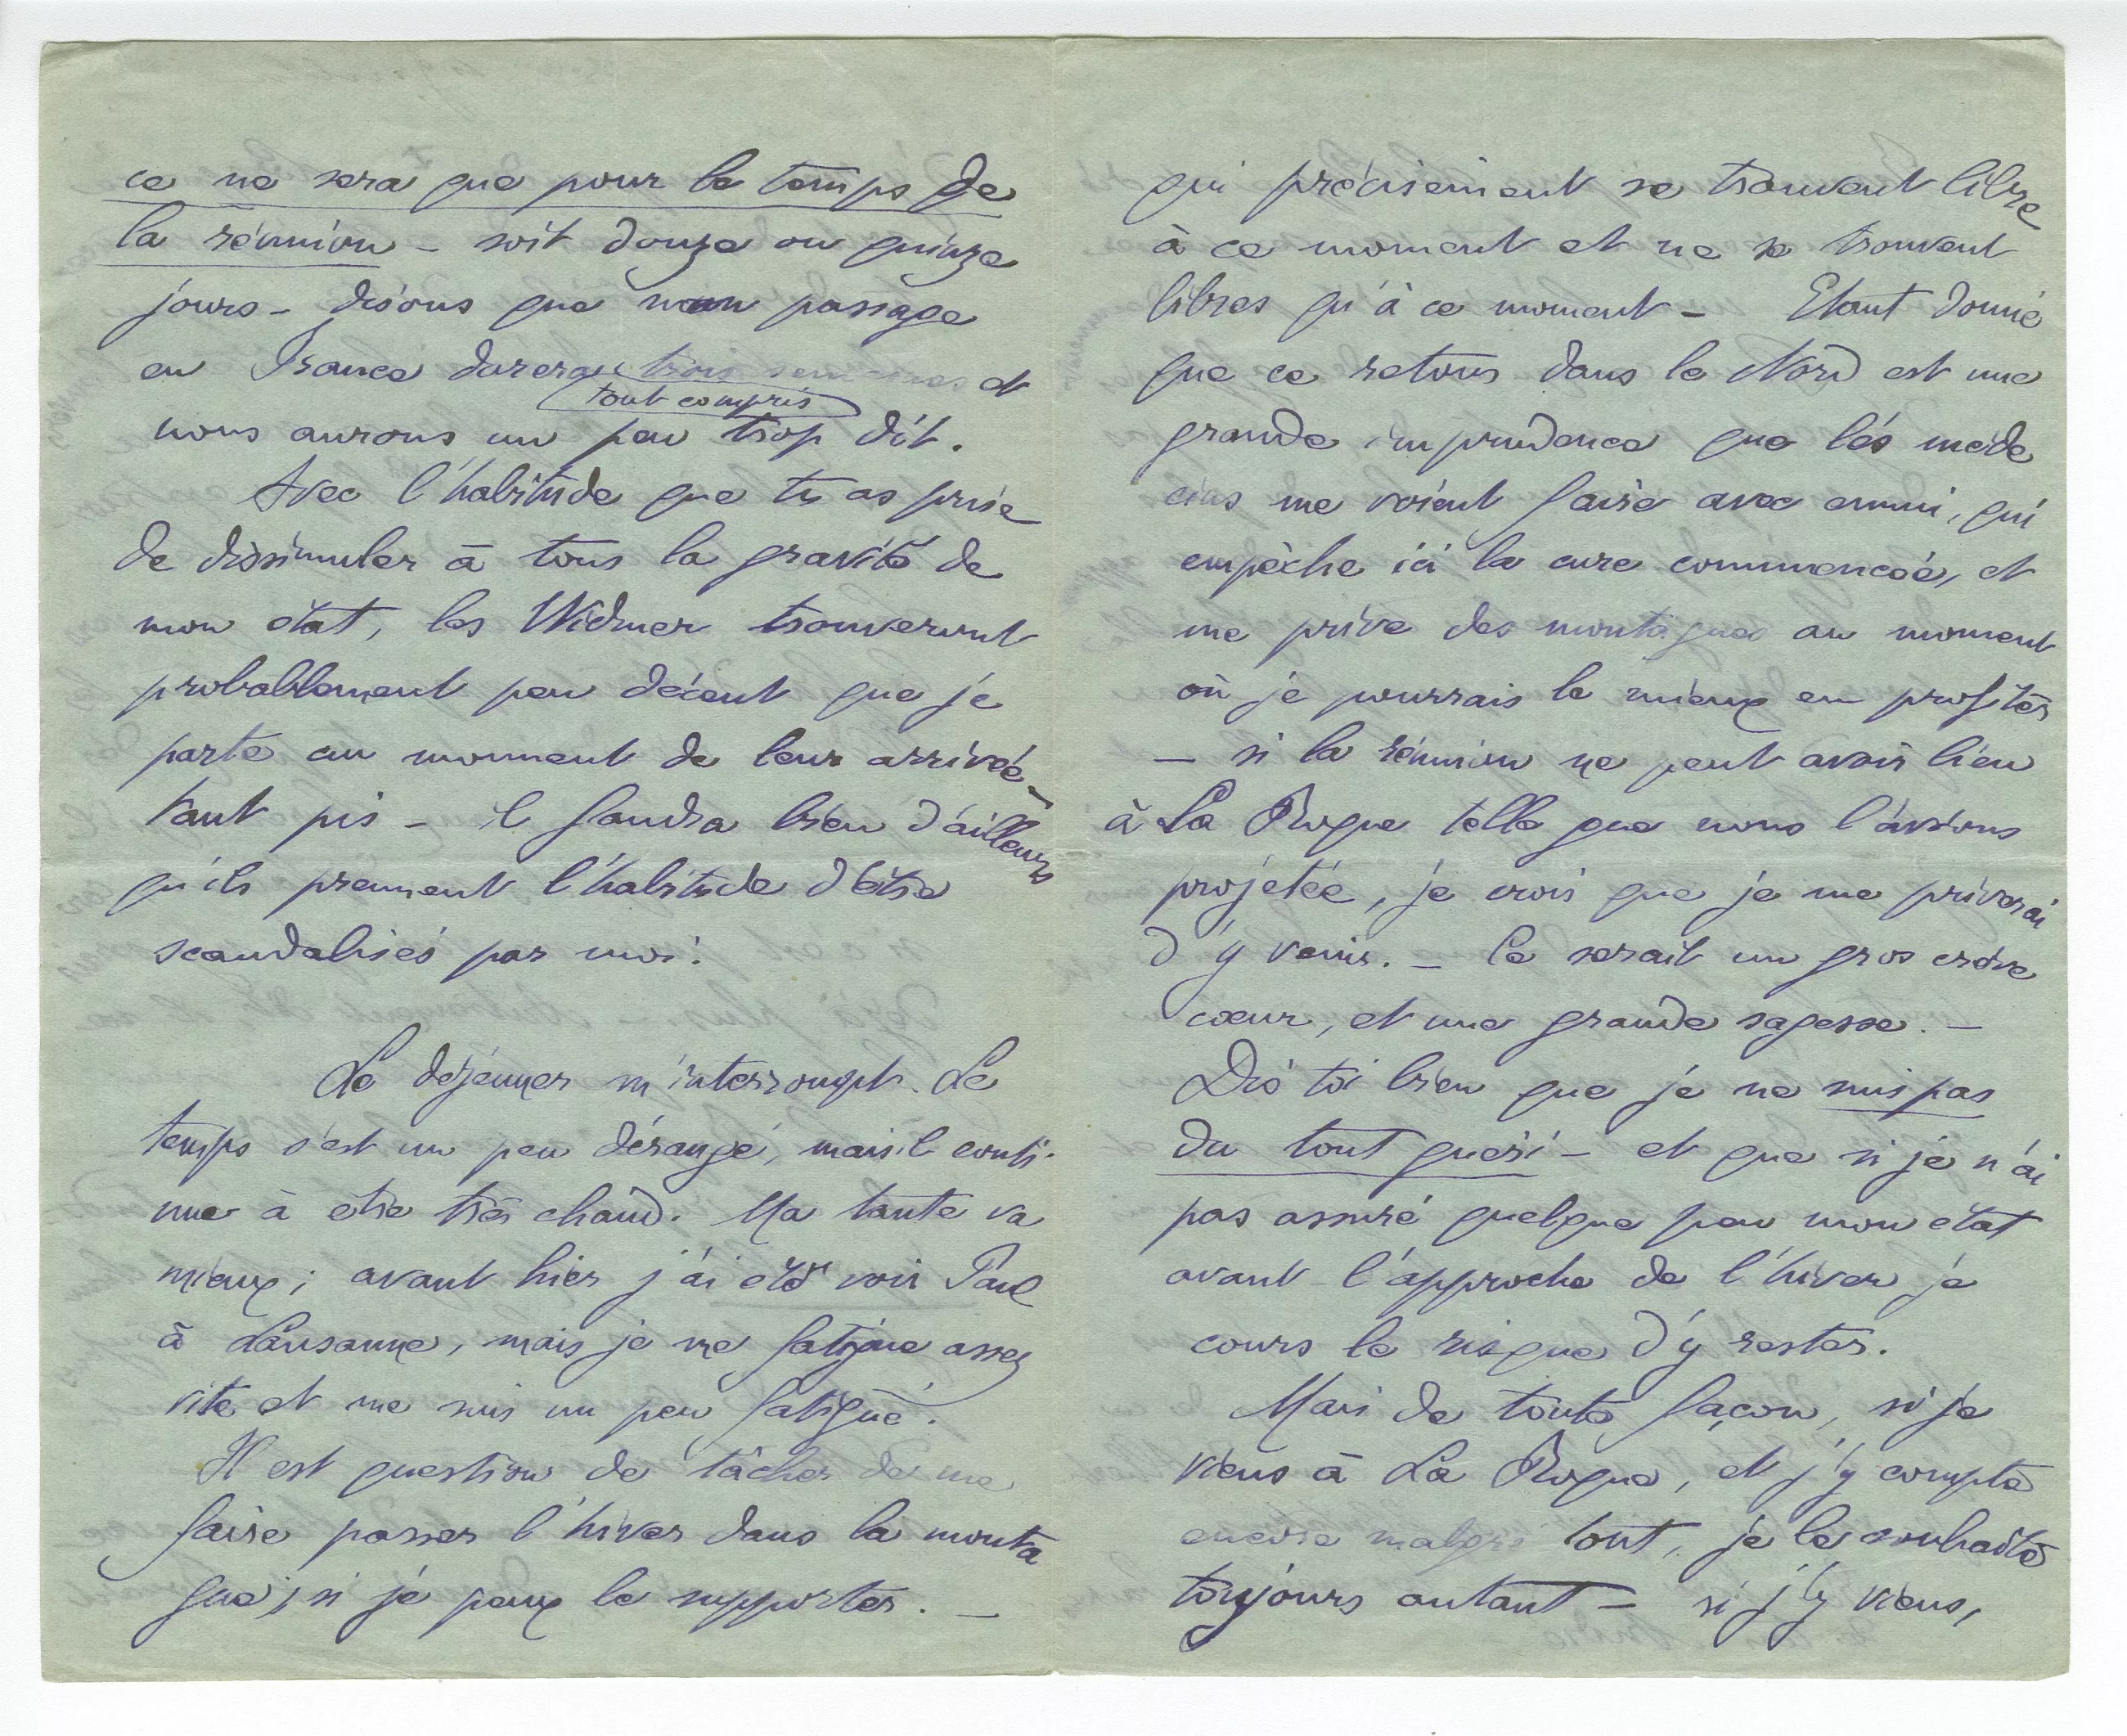 ce ne sera que pour le temps de
la réunion – soit douze ou quinze
jours – disons que mon passage
en France durera trois semaines et
tout compris
nous aurons un peu trop dit.
Avec l'habitude que tu as prise
de dissimuler à tous la gravité de
mon état, les Widmer trouveront
probablement peu décent que je
parte au moment de leur arrivée –
tant pis – il faudra bien d'ailleurs
qu'ils prennent l'habitude d'être
scandalisés par moi.
Le déjeuner m'interrompt. Le
temps s'est un peu dérangé, mais il conti-
nue à être très chaud. Ma tante va
mieux ; avant hier j'ai été voir Paul
à Lausanne, mais je me fatigue assez
vite et me suis un peu fatigué.
Il est question de tâcher de me
faire passer l'hiver dans la monta
gne, si je peux le supporter. –
qui précisément se trouvent libre
à ce moment et ne se trouvent
libres qu'à ce moment – Etant donné
que ce retour dans le Nord est une
grande imprudence que les méde
cins me voient faire avec ennui, qui
empêche ici la cure commencée, et
me prive des montagnes au moment
où je pourrais le mieux en profiter
– si la réunion ne peut avoir lieu
à La Roque telle que nous l'avions
projetée, je crois que je me priverai
d'y venir. – Ce serait un gros crève
cœur, et une grande sagesse. –
Dis toi bien que je ne suis pas
du tout guéri – et que si je n'ai
pas assuré quelque peu mon état
avant l'approche de l'hiver je
cours le risque d'y rester.
Mais de toute façon, si je
viens à La Roque, et j'y compte
encore malgré tout, je le souhaite
toujours autant – si j'y viens,